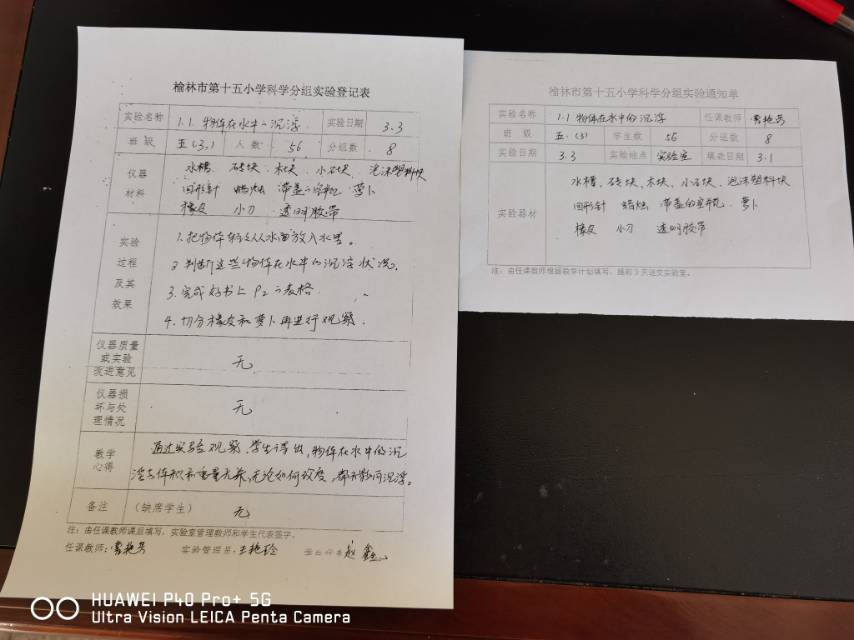 榆林市第十五小学科学分组实验登记表
实验名称 1.1 物体在水中的沉浮 实验日期 3.3
班级 五(3) 人数 56 分组数 8
仪器材料
水槽 砖块 木块 小石块 泡沫塑料块
回形针 蜡烛 带盖的空瓶 萝卜
橡皮 小刀 透明胶带
实验过程及其效果
1.把物体轻轻从水面放入水里。
2.判断这些物体在水中的沉浮状况。
3.完成好书上P2的表格.
4.切分橡皮和萝卜再进行观察.
仪器质量或实验改进意见 无
仪器损坏与处理情况 无
教学心得
通过实验观察,学生得出,物体在水中的沉
浮与体积和重量无关,无论如何改变,都不影响沉浮。
备注 (缺席学生) 无
注:由任课教师课后填写,实验室管理教师和学生代表签字。
任课教师: 实验管理员:王艳玲 学生代表 赵鑫
榆林市第十五小学科学分组实验通知单
实验名称 1.1 物体在水中的沉浮 任课教师
班级 五.(3) 学生数 56 分组数 8
实验日期 3.3 实验地点 实验室 填表日期 3.1
实验器材
水槽、砖块、木块、小石块、泡沫塑料块
回形针 蜡烛 带盖的空瓶、萝卜
橡皮 小刀 透明胶带
注:由任课教师根据教学计划填写,提前3天送交实验室。
HUAWEI P40 Pro+ 5G
Ultra Vision LEICA Penta Camera